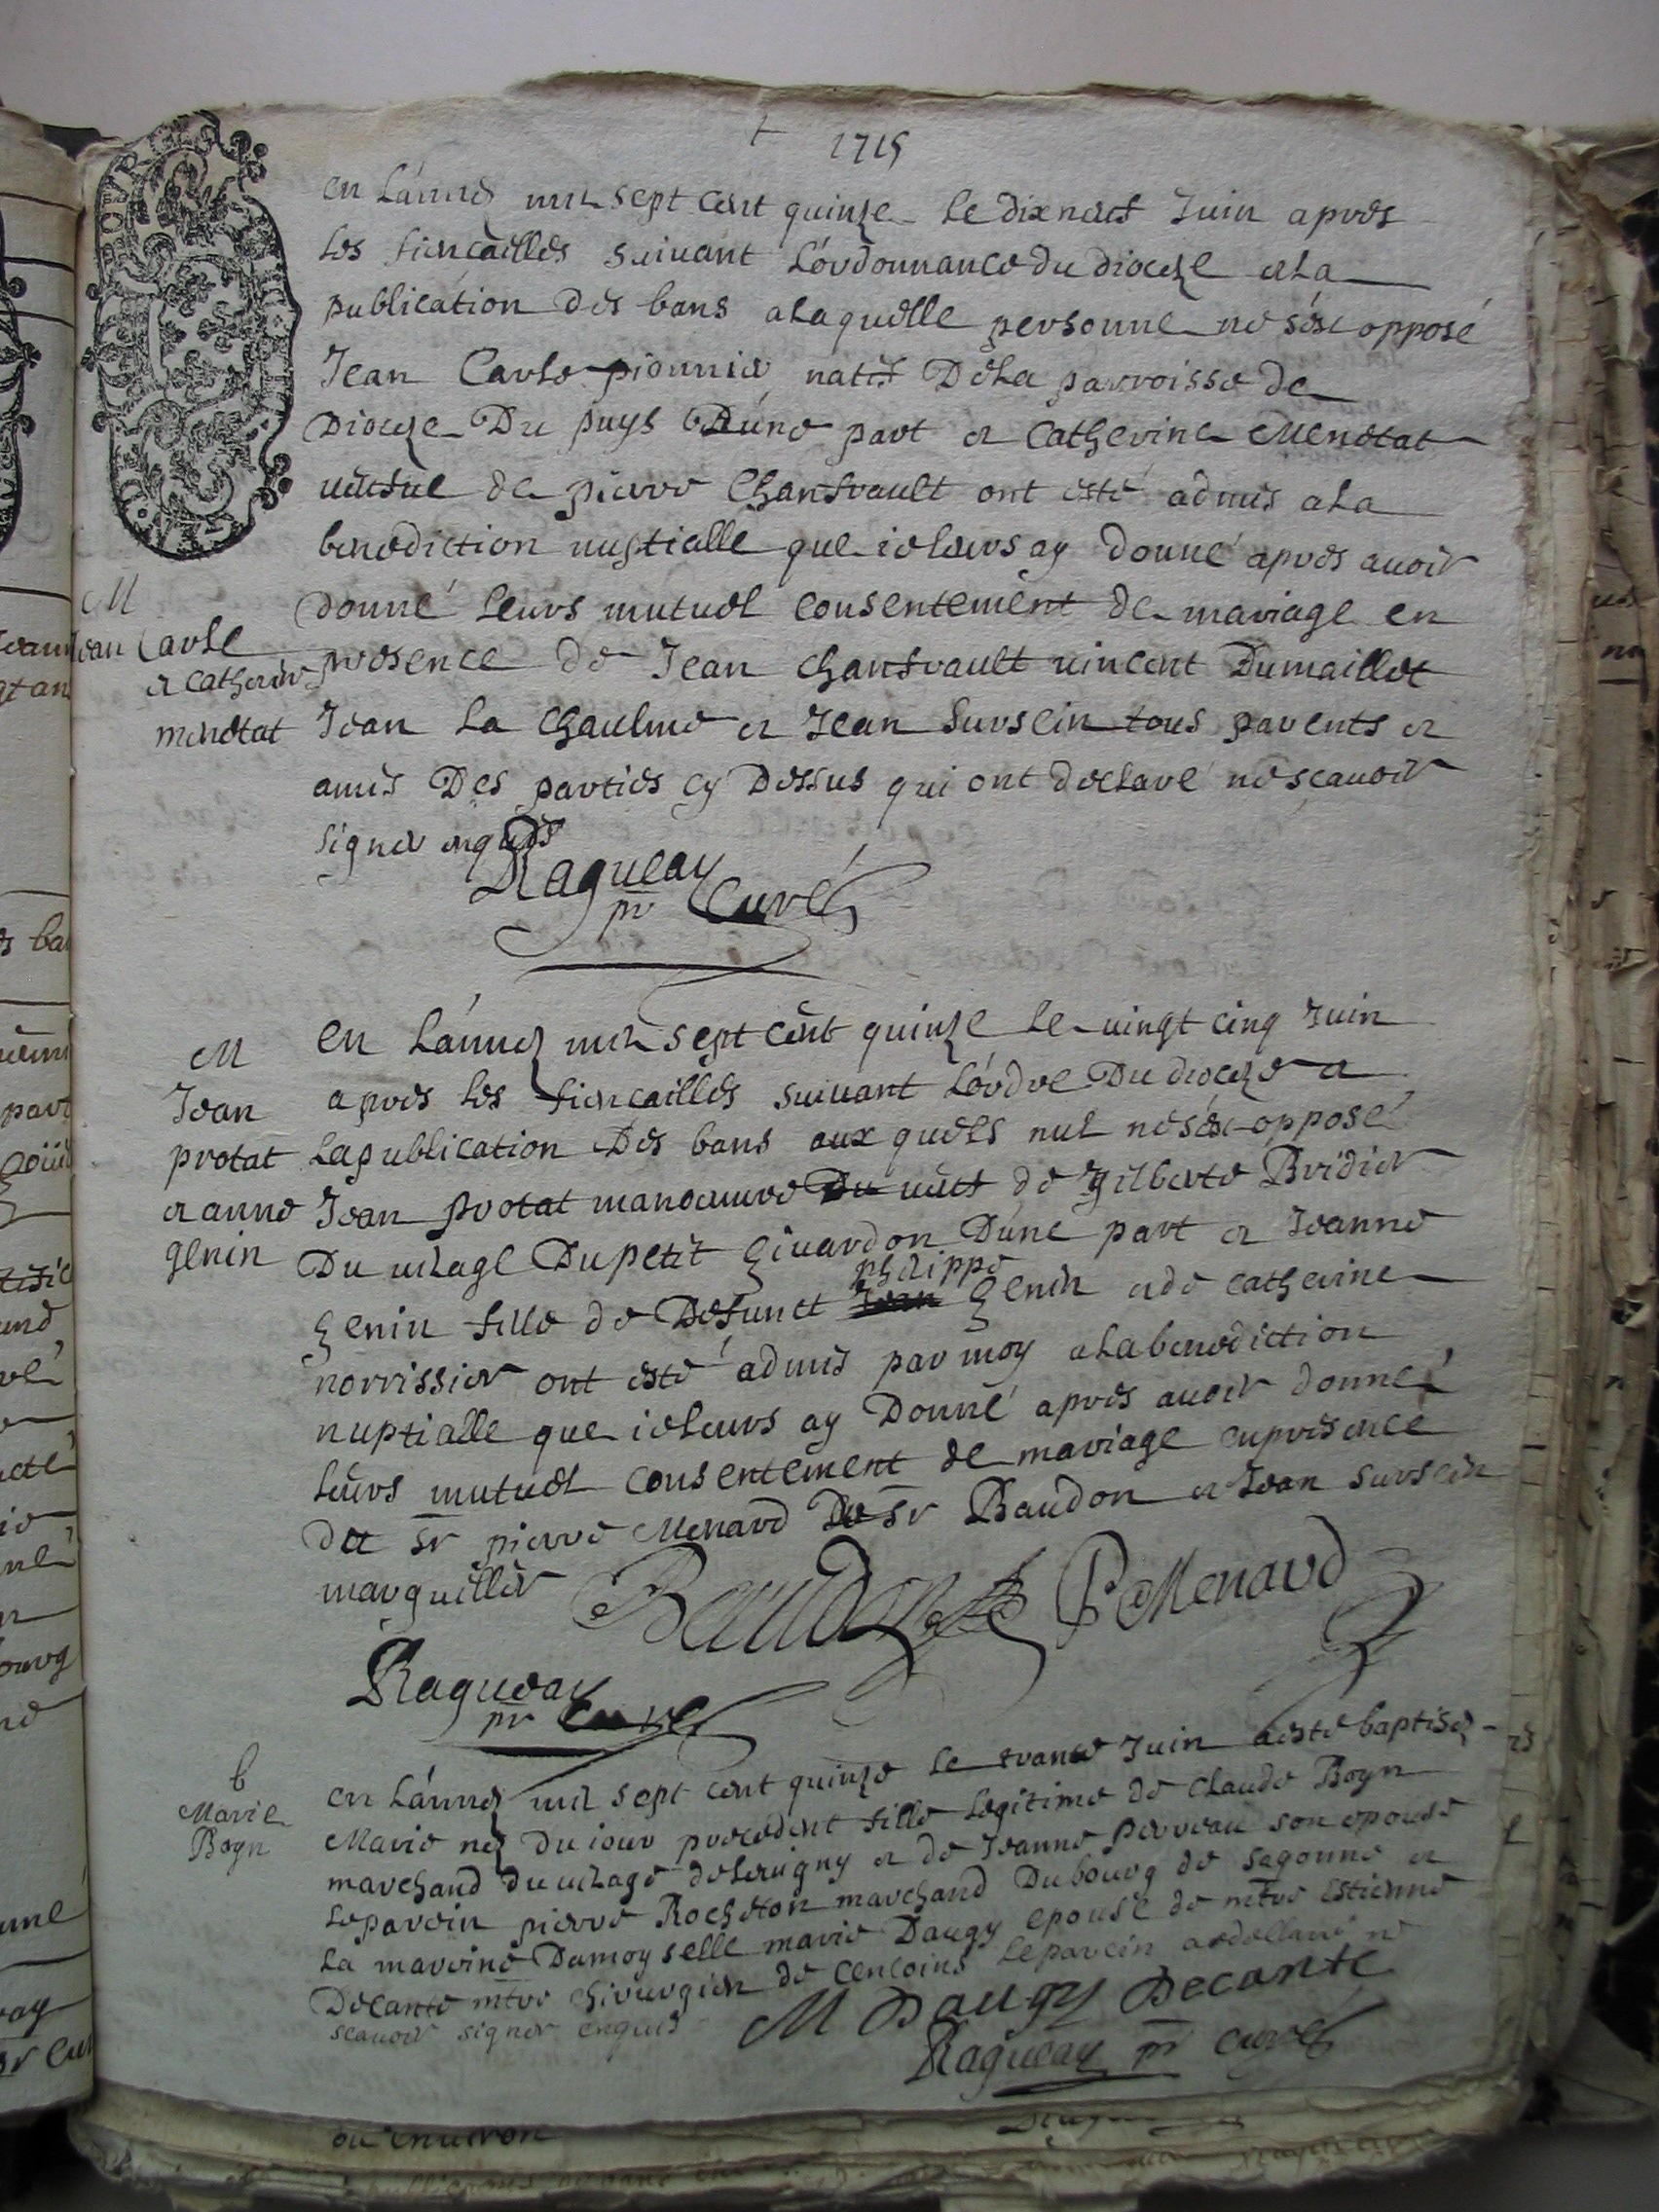 1715
en l'année mil sept cent quinze le dix neuf Juin apres
les fiencailles suivant l'ordonnance du dioceze et la
publication des bans a laquelle personne ne s'est opposé
Jean Carle pionnier natif De la parroisse de
Dioceze Du puys D'une part et Catherine Menetat
veufue de pierre Chanfrault ont esté admis a la
benediction nuptialle que ie leurs ay donné apres auoir
donné leurs mutuel consentement de mariage en
presence de Jean chanfrault vincent Dumaillet
Jean La Chaulme et Jean Sursein tous parents et
amis Des parties cy Dessus qui ont declaré ne scauoir
signer enquis
Ragueau
pr Curé
M
Jean Carle
et Catherine
menetat
en l'année mil sept cent quinze le vingt cinq Juin
apres les fiencailles suiuant l'ordre Du dioceze et
la publication Des bans aux quels nul ne s'est opposé
Jean protat manoeuure Du veuf de Gilberte Bridier
Du vilage Du petit Givardon D'une part et Jeanne
philippe
Genin fille de Defunct Jean Genin et de catherine
norrissier ont esté admis par moy a la benediction
nuptialle que ie leurs ay Donné apres auoir donné
leurs mutuel consentement de mariage en presence
de sr pierre Menard De sr Baudon et Jean sursein
marguillier
Baudon P Menard
Ragueau
pr Curé
M
Jean
protat
et anne
genin
en l'année mil sept cent quinze le trante Juin a esté baptisez
Marie nez du iour precedent fille legitime de Claude Boyn
marchand du vilage de leuigny et de Jeanne perreau son epouse
le parein pierre Rocheton marchand Du bourg de sagonne et
la mareine Damoyselle marie Daugy epouse de mtre Estienne
Decante mtre chirurgien de cencoins le parein a declaré ne
scauoir signer enquis
M Daugy Decante
Ragueau pr curé
b
Marie
Boyn
ou enuiron